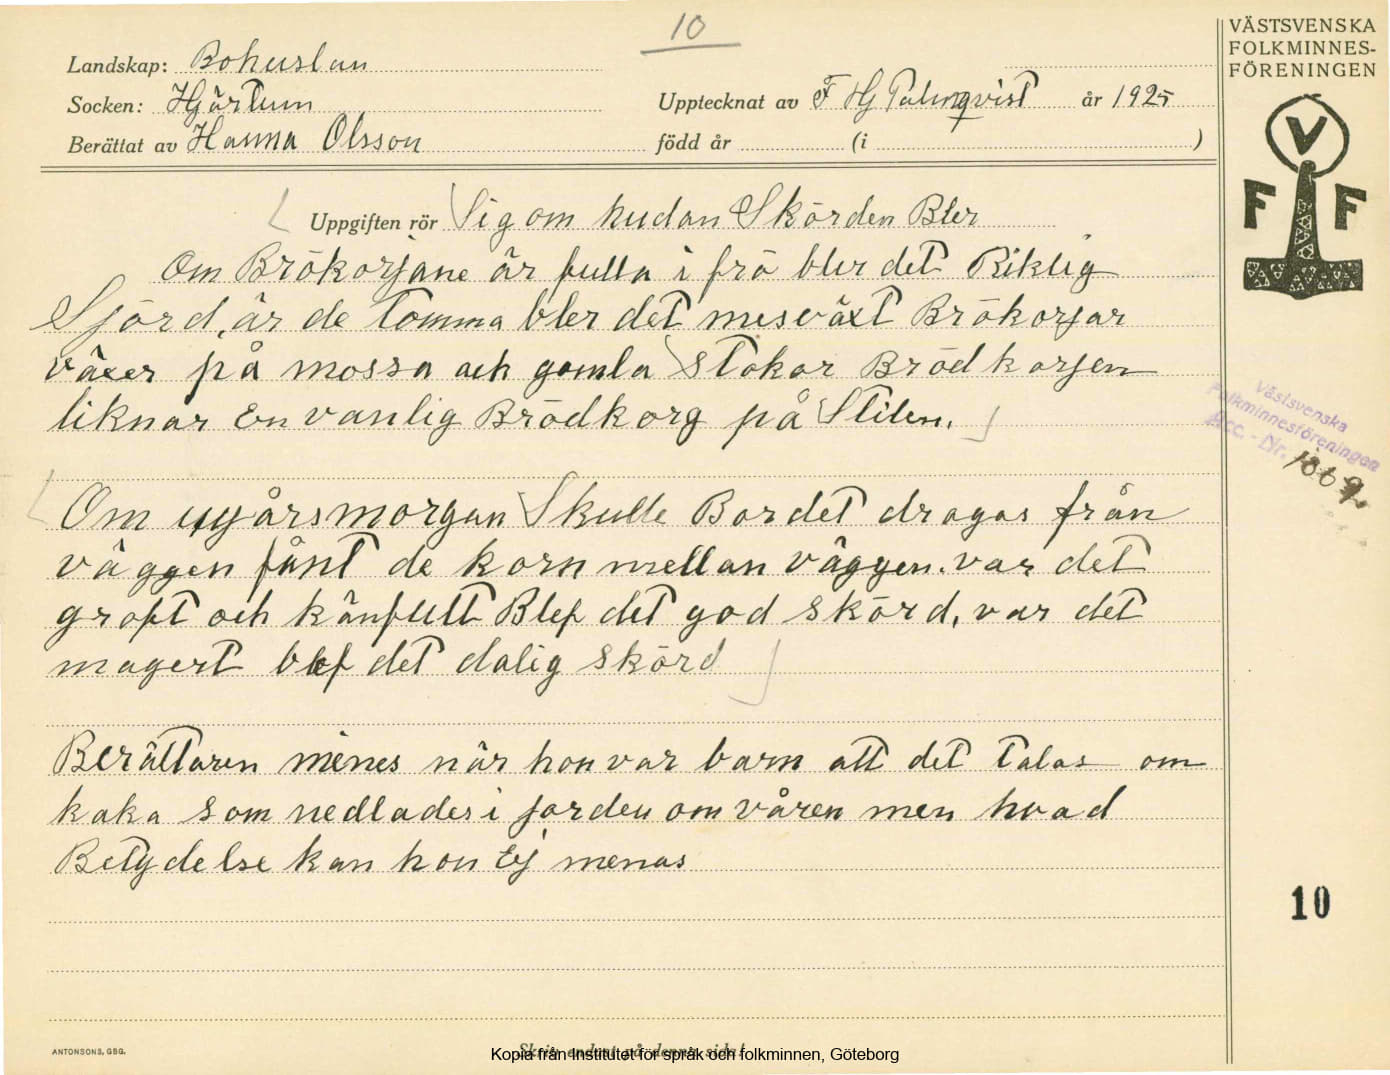 10
Landskap: Bohuslan
Socken: Hjärtum
Upptecknat av F Hj Palmqvist år 1925
Berättat av Hanna Olsson född år (i )
VÄSTSVENSKA
FOLKMINNES-
FÖRENINGEN
V
F F
Uppgiften rör Sig om hudan Skörden Bler
Om Brökorjane är fulla i frö bler det Riklig
Sjörd, är de tomma bler det mesväxt Brökorjar
växer på mossa och gamla Stokar Brödkorjen
liknar En vanlig Brödkorg på Stilen.
Västsvenska
Folkminnesföreningen
Acc. - Nr.
Om nyårsmorgan Skulle Bordet dragas från
väggen fånt de korn mellan väggen. var det
groft och känfullt Blef det god skörd, var det
magert blef det dalig skörd
Berättaren menes när hon var barn att det talas om
kaka som nedlades i jorden om våren men hvad
Betydelse kan hon Ej menas
10
ANTONSONS, GBG.
Skriv endast på denna sida!
Kopia från Institutet för språk och folkminnen, Göteborg